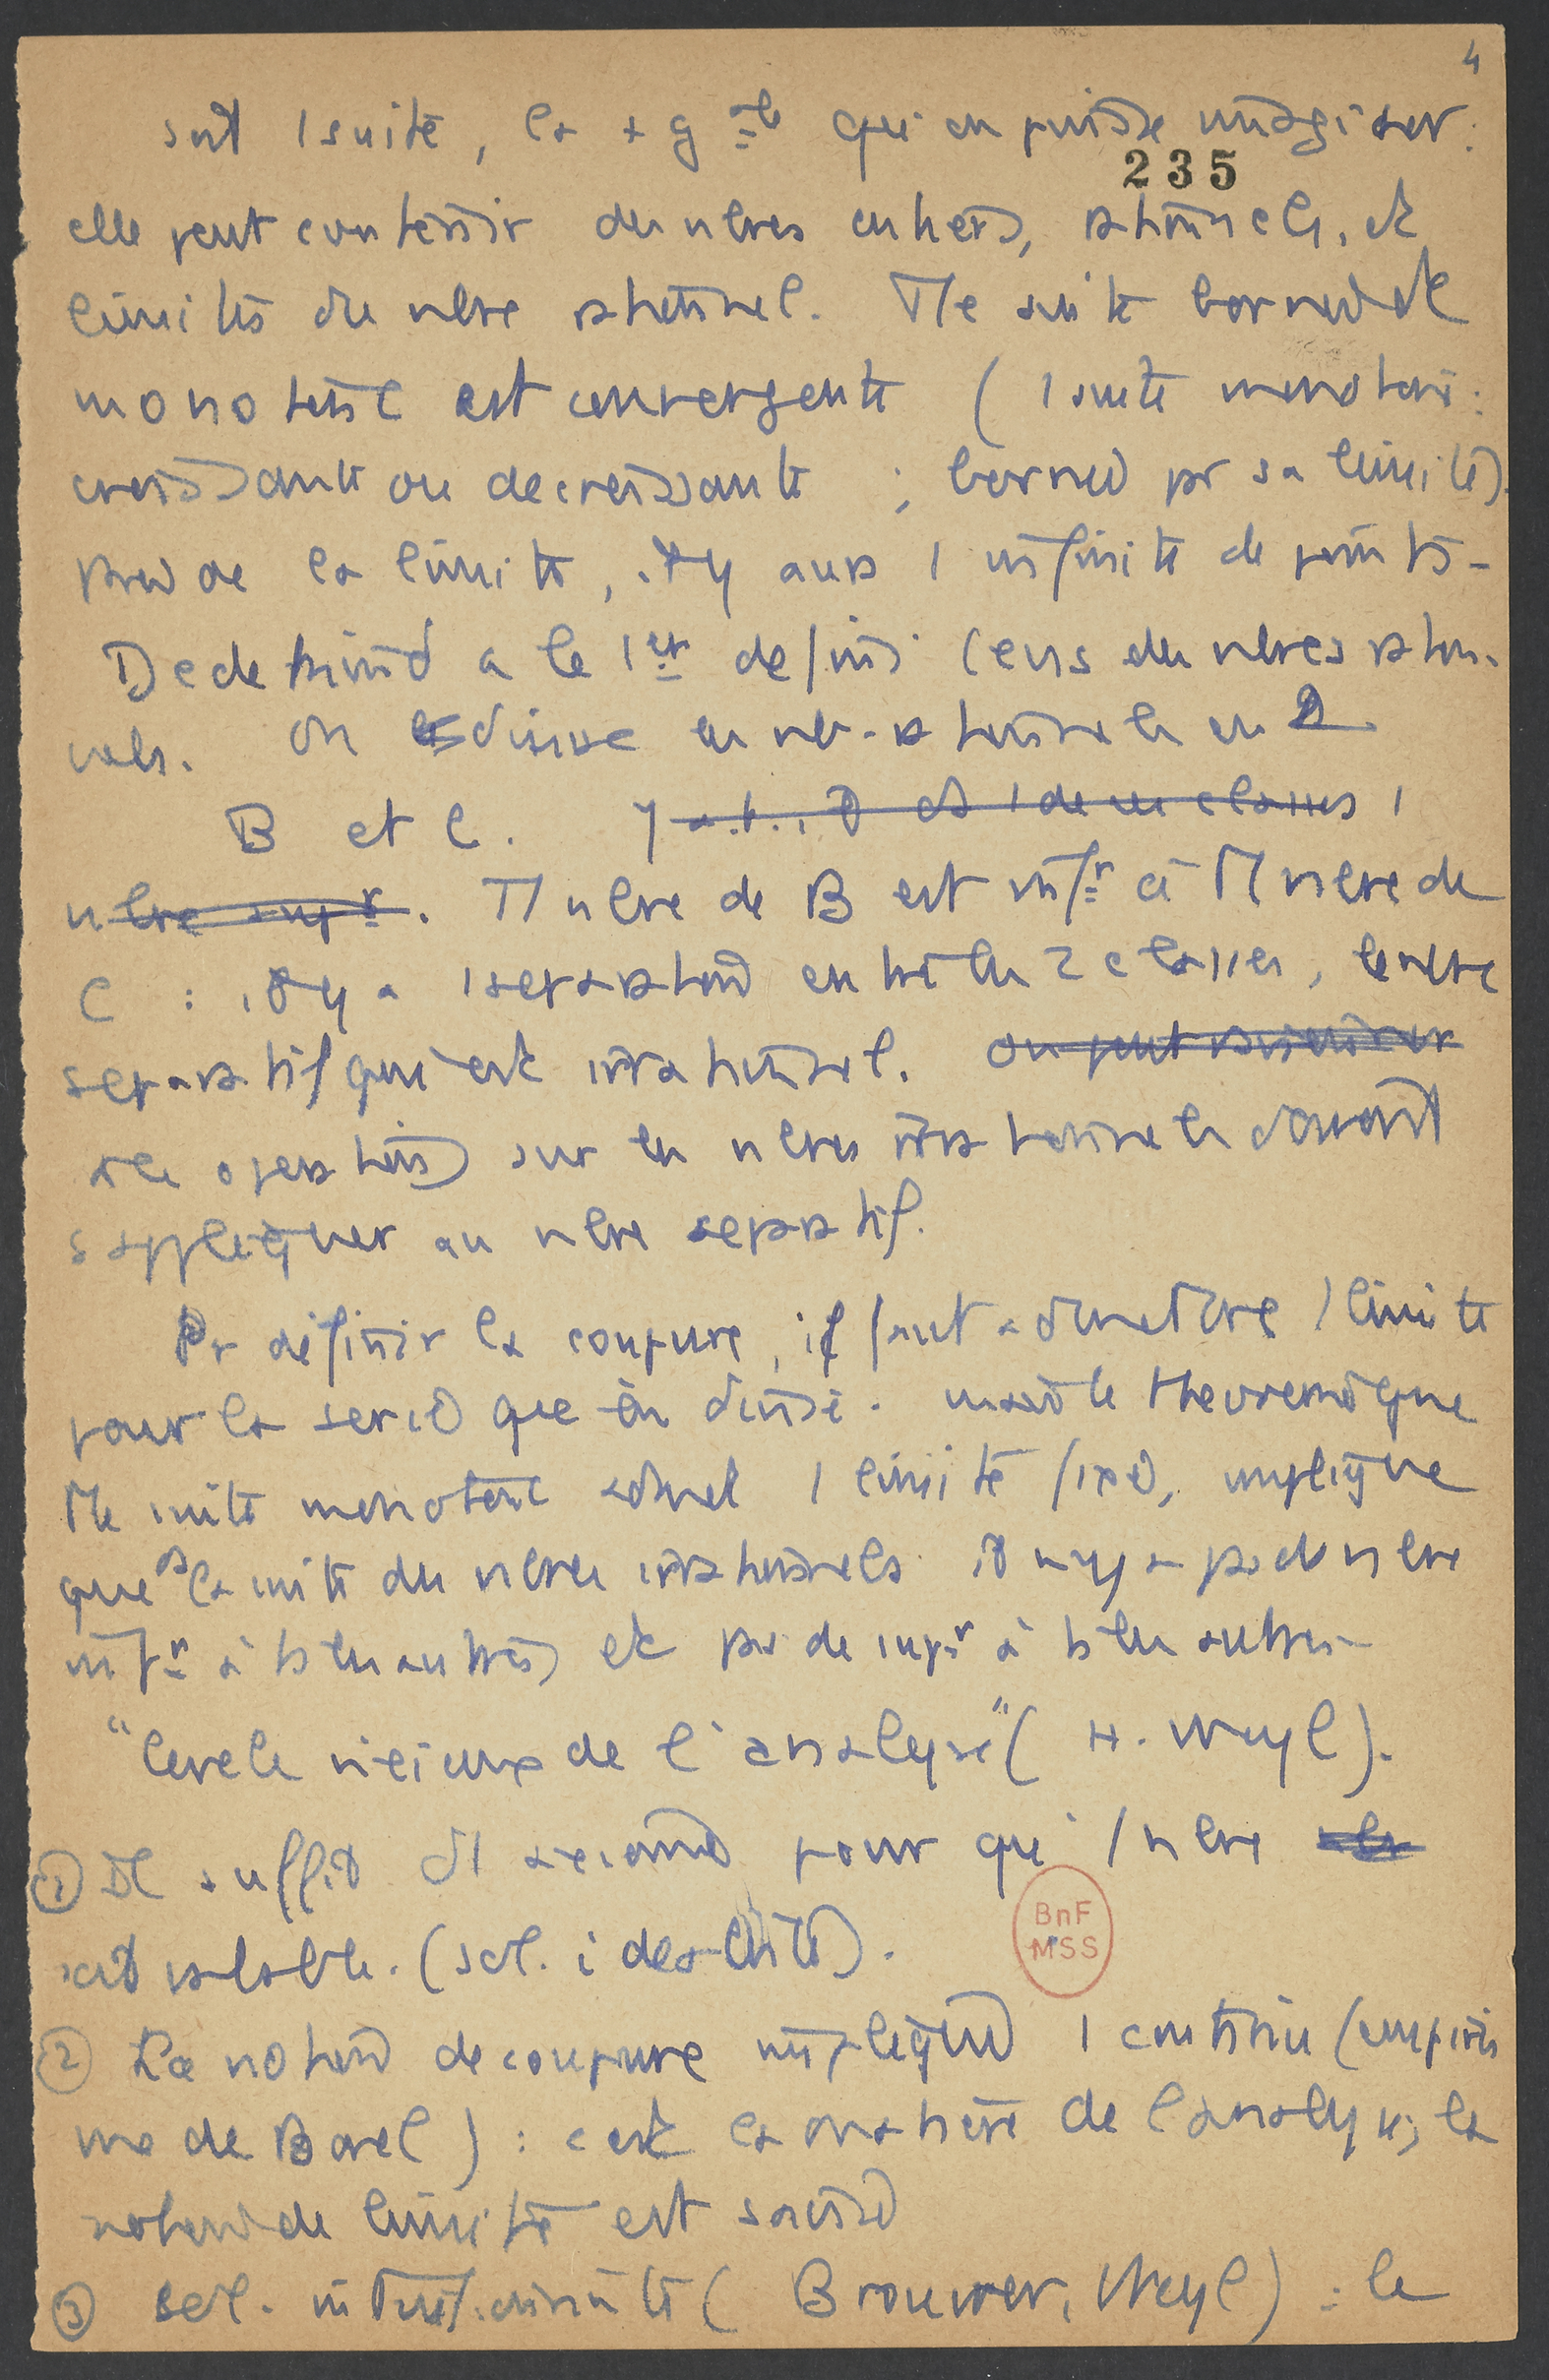 4
soit 1 suite, la + g ale qui en puisse imaginer :
235
elle peut contenir des nbres entiers, rationnels, et
limites de nbre rationnel. Tte suite bornée et
monotone est convergente ( 1 suite monotone :
croissante ou decroissante ; bornée pr sa limite).
Près de la limite, il y aura 1 infinité de points -
Dedekind a le 1er defini l'ens des nbres ration-
nels. On divise les nbr. rationnels en 2
B et C. y a.t.il ds 1 de ces classes 1
nbre supr. Tt nbre de B est infr à Tt nbre de
C : il y a 1 separation entre les 2 classes, le nbre
separatif qui est irrationnel. on peut
les operations sur les nbres irrationnels doivent
s'appliquer au nbre separatif.
Pr définir la coupure, il faut admettre 1 limite
pour la serie que on divise. mais le theoreme que
Tte suite monotone admet 1 limite fixe, implique
que ds la suite des nbres irrationnels il n'y a pas de nbre
infr à ts les autres et pas de supr à ts les autres -
"cercle vicieux de l'analyse" ( H. Weyl ).
① Il suffit d'1 axiome pour que 1 nbre
soit valable. (sol. idealiste).
② La notion de coupure implique 1 continu (empiris
me de Borel) : c'est la matière de l'analyse, la
notion de limite est
③ sol. intuitionniste ( Brouwer, Weyl ) : le
BnF
MSS